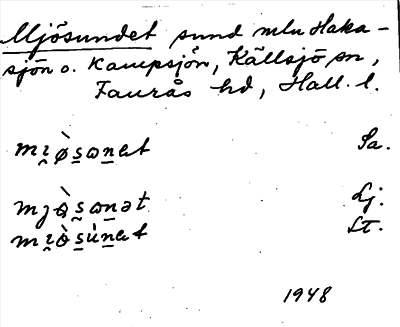 Mjösundet sund mlu Haka-
sjön o. Kampsjön, Källsjö sn,
Faurås hd, Hall. l.
mi̯ø̀s̱ɷṉet Sa.
mȷø̀s̱ɷṉət Lj.
mi̯ø̀s̱ùṉet Lt.
1948